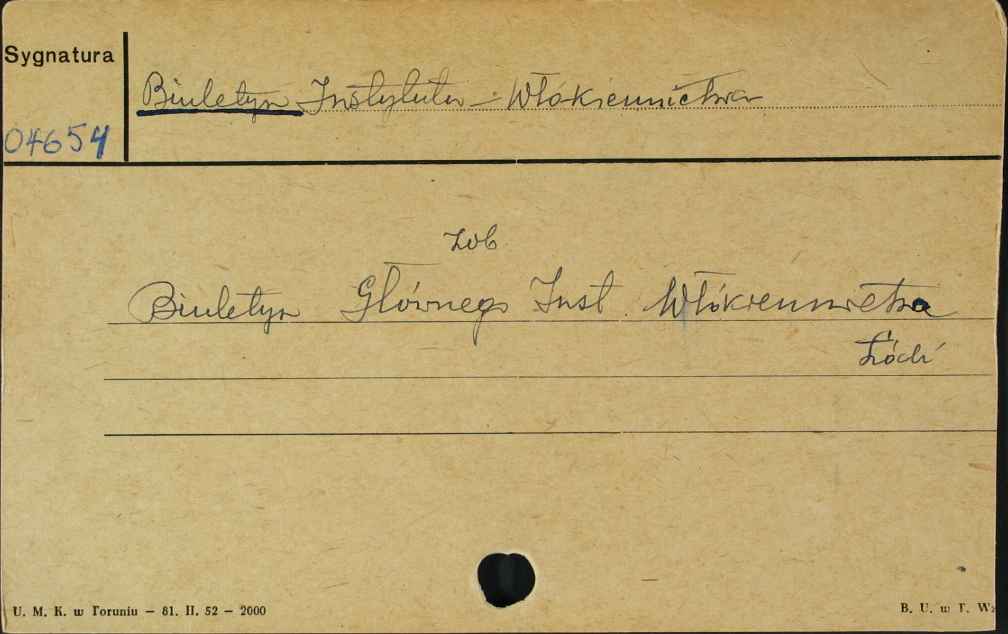 Sygnatura
Biuletyn Instytutu Włókiennictwa
04654
zob
Biuletyn Głównego Inst. Włókiennictwa
Łódź
U. M. K. w Toruniu — 81. II. 52 — 2000
B. U. w T. Wz